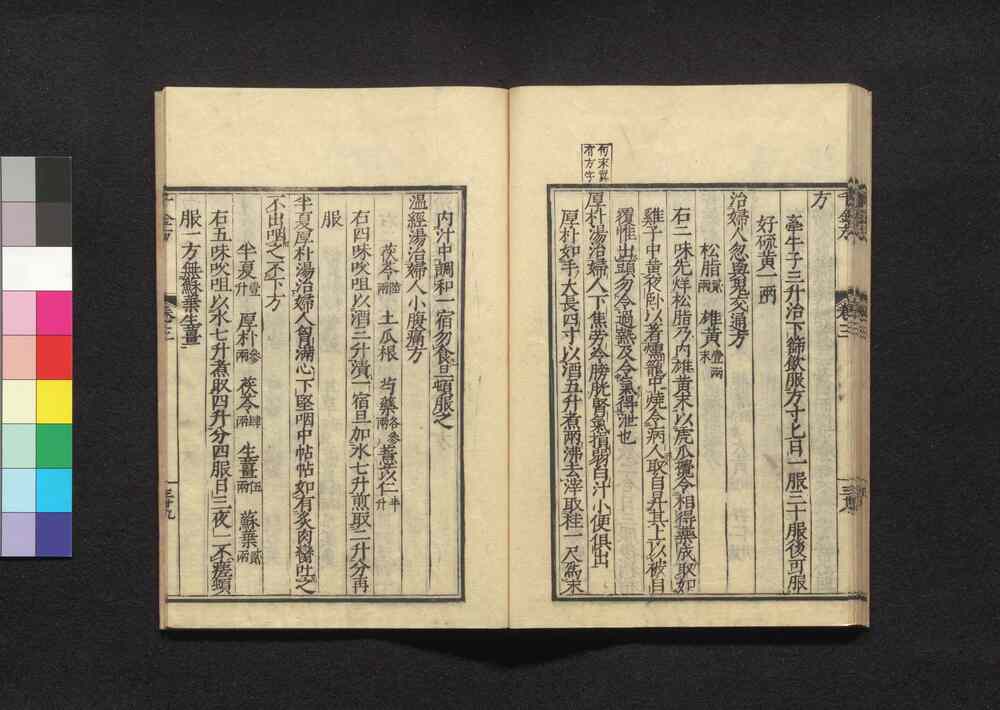 方
牽牛子三升治下篩飲服方寸匕日一服三十服後可服
好硫黃一兩
治婦人忽與鬼交通方
松脂貳兩 雄黃壹兩末
右二味先烊松脂乃內雄黃末以虎爪攪令相得藥成取如
雞子中黃夜臥以著燻籠中燒令病人取自升其上以被自
覆惟出頭勿令過熱及令氣得泄也
厚朴湯治婦人下焦勞冷膀胱腎氣損弱白汁小便俱出
厚朴如手大長四寸以酒五升煮兩沸去滓取桂一尺為末
內汁中調和一宿勿食旦頓服之
溫經湯治婦人小腹痛方
茯苓陸兩 土瓜根 芍藥各參兩 薏苡仁半升
右四味㕮咀以酒三升漬一宿旦加水七升煎取二升分再
服
半夏厚朴湯治婦人胷滿心下堅咽中帖帖如有炙肉臠吐之
不出咽之不下方
半夏壹升 厚朴參兩 茯苓肆兩 生薑伍兩 蘇葉貳兩
右五味㕮咀以水七升煮取四升分四服日三夜一不瘥頻
服一方無蘇葉生薑